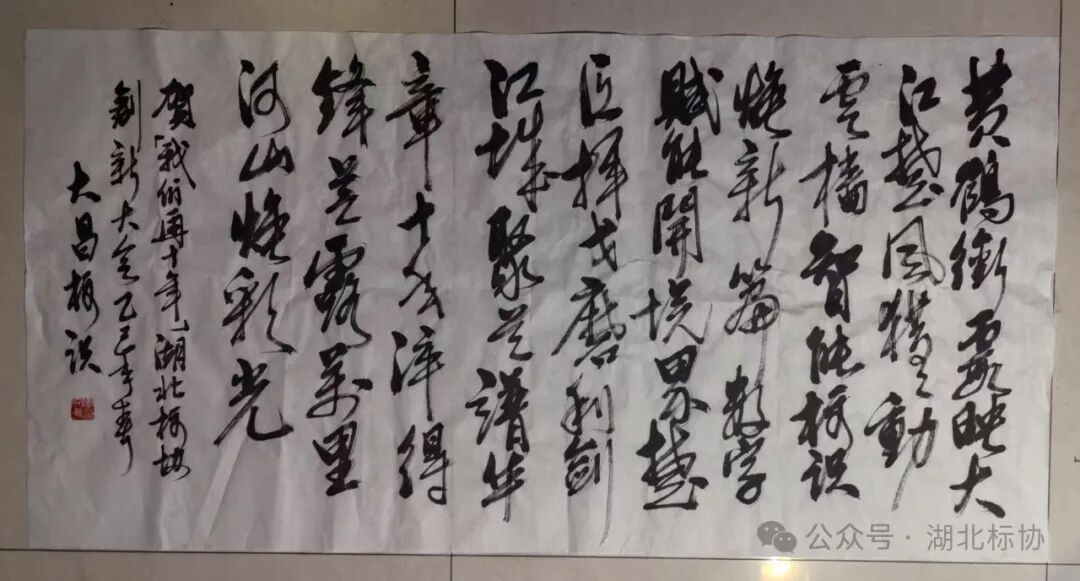 黄鶴銜霞映大
江楚风猎猎動
雲樯智能标识
焕新篇数字
赋能開境界楚
匠挥戈磨利剑
江城聚芒谱华
章十载淬得
锋芒露万里
河山焕彩光
贺我们再十年湖北标协
创新大会乙巳季春
大昌标识
公众号·湖北标协